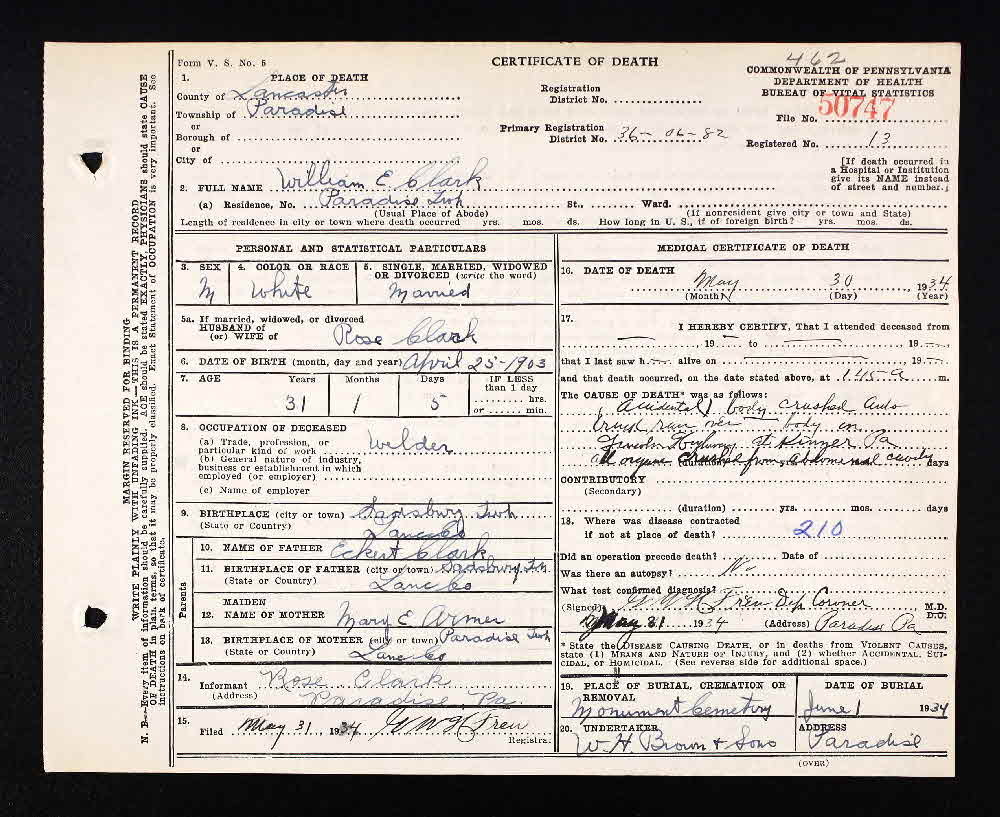 Form V. S. No. 5
CERTIFICATE OF DEATH
462
COMMONWEALTH OF PENNSYLVANIA
DEPARTMENT OF HEALTH
BUREAU OF VITAL STATISTICS
1. PLACE OF DEATH
County of Lancaster
Township of Paradise
or
Borough of
or
City of
Registration
District No.
Primary Registration
District No. 36-06-82
File No. 50747
Registered No. 13
[If death occurred in
a Hospital or Institution
give its NAME instead
of street and number.]
2. FULL NAME William E Clark
(a) Residence, No. Paradise Twp St., Ward.
(Usual Place of Abode) (If nonresident give city or town and State)
Length of residence in city or town where death occurred yrs. mos. ds. How long in U. S., if of foreign birth? yrs. mos. ds.
PERSONAL AND STATISTICAL PARTICULARS
3. SEX 4. COLOR OR RACE 5. SINGLE, MARRIED, WIDOWED
OR DIVORCED (write the word)
M White Married
5a. If married, widowed, or divorced
HUSBAND of
(or) WIFE of Rose Clark
6. DATE OF BIRTH (month, day and year) April 25-1903
7. AGE Years Months Days IF LESS
than 1 day
hrs.
or min.
31 1 5
8. OCCUPATION OF DECEASED
(a) Trade, profession, or
particular kind of work Welder
(b) General nature of industry,
business or establishment in which
employed (or employer)
(c) Name of employer
9. BIRTHPLACE (city or town) Sadsbury Twp
(State or Country) Lanc Co
Parents
10. NAME OF FATHER Eckert Clark
11. BIRTHPLACE OF FATHER (city or town) Sadsbury Tp.
(State or Country) Lanc Co
12. MAIDEN
NAME OF MOTHER Mary E Armer
13. BIRTHPLACE OF MOTHER (city or town) Paradise Twp
(State or Country) Lanc Co
14.
Informant Rose Clark
(Address) Paradise, Pa.
15.
Filed May 31 1934 G W H Frew
Registrar.
MEDICAL CERTIFICATE OF DEATH
16. DATE OF DEATH
May 30 1934
(Month) (Day) (Year)
17.
I HEREBY CERTIFY, That I attended deceased from
19 to 19
that I last saw h alive on 19
and that death occurred, on the date stated above, at 1.45 a m.
The CAUSE OF DEATH* was as follows:
(Accidental) body crushed Auto
truck ran over body on
Lincoln Highway at Kinzer Pa
All organs crushed from abdominal cavity
(duration) days
CONTRIBUTORY
(Secondary)
(duration) yrs. mos. days
18. Where was disease contracted
if not at place of death? 210
Did an operation precede death? Date of
Was there an autopsy? No
What test confirmed diagnosis?
(Signed) G W H Frew Dep Coroner M.D.
D.O.
May 31 1934 (Address) Paradise Pa
* State the DISEASE CAUSING DEATH, or in deaths from VIOLENT CAUSES,
state (1) MEANS AND NATURE OF INJURY, and (2) whether ACCIDENTAL, SUI-
CIDAL, or HOMICIDAL. (See reverse side for additional space.)
19. PLACE OF BURIAL, CREMATION OR
REMOVAL
Monument Cemetery
DATE OF BURIAL
June 1 1934
20. UNDERTAKER
W. H. Brown + Sons
ADDRESS
Paradise
(OVER)
MARGIN RESERVED FOR BINDING
WRITE PLAINLY WITH UNFADING INK—THIS IS A PERMANENT RECORD
N. B.—Every item of information should be carefully supplied. AGE should be stated EXACTLY. PHYSICIANS should state CAUSE
OF DEATH in plain terms, so that it may be properly classified. Exact Statement of OCCUPATION is very important. See
instructions on back of certificate.